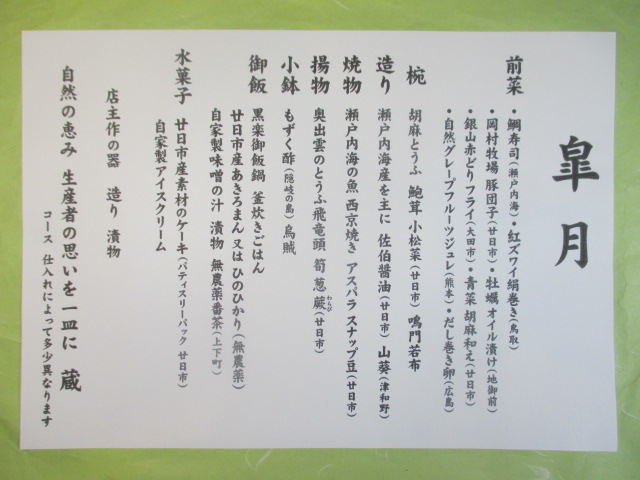 皐月
前菜・鯛寿司（瀬戸内海）・紅ズワイ絹巻き（鳥取）
・岡村牧場 豚団子（廿日市）・牡蠣オイル漬け（地御前）
・銀山赤どりフライ（大田市）・青菜胡麻和え（廿日市）
・自然グレープフルーツジュレ（熊本）・だし巻き卵（広島）
椀 胡麻とうふ 鮑茸 小松菜（廿日市） 鳴門若布
造り 瀬戸内海産を主に 佐伯醤油（廿日市） 山葵（津和野）
焼物 瀬戸内海の魚 西京焼き アスパラ スナップ豆（廿日市）
揚物 奥出雲のとうふ飛竜頭 筍 葱 蕨（廿日市）
わらび
小鉢 もずく酢（隠岐の島） 烏賊
御飯 黒楽御飯鍋 釜炊きごはん
廿日市産あきろまん 又は ひのひかり（無農薬）
自家製味噌の汁 漬物 無農薬番茶（上下町）
水菓子 廿日市産素材のケーキ（パティスリーパック 廿日市）
自家製アイスクリーム
店主作の器 造り 漬物
自然の恵み 生産者の思いを一皿に 蔵
コース 仕入れによって多少異なります